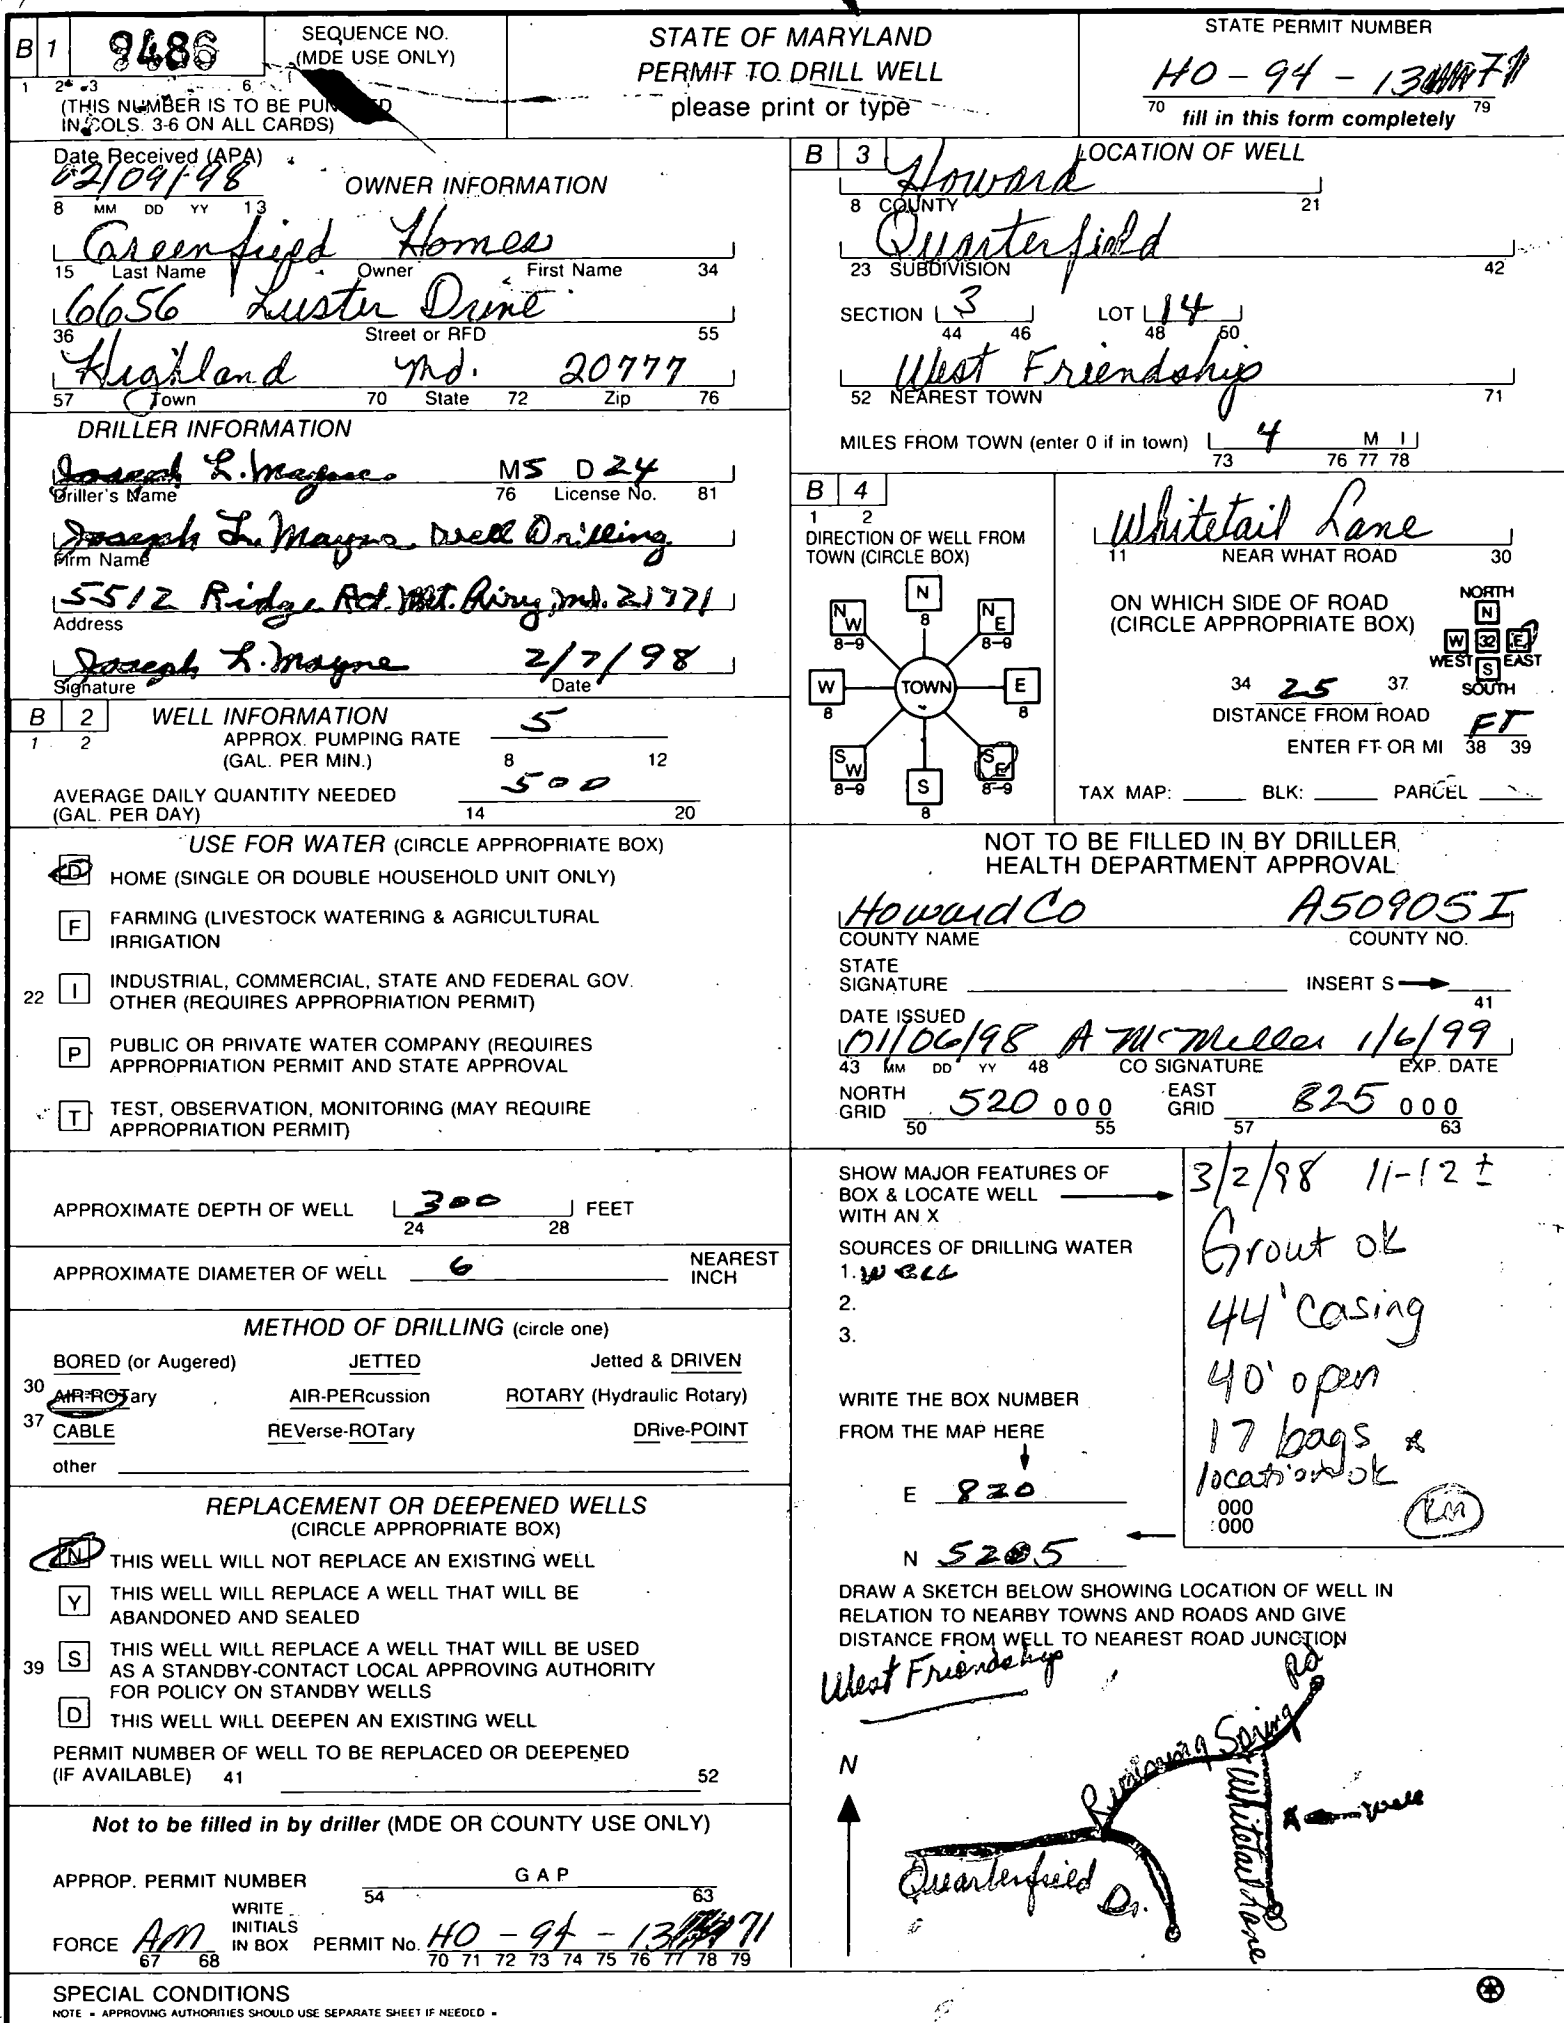 B 1 9486 SEQUENCE NO. (MDE USE ONLY)
1 2 3 6
(THIS NUMBER IS TO BE PUNCHED
IN COLS. 3-6 ON ALL CARDS)
STATE OF MARYLAND
PERMIT TO DRILL WELL
please print or type
STATE PERMIT NUMBER
HO - 94 - 1371
70 fill in this form completely 79
Date Received (APA)
02/09/98
8 MM DD YY 13
OWNER INFORMATION
Greenfield Homes
15 Last Name Owner First Name 34
6656 Luster Drive
36 Street or RFD 55
Highland Md. 20777
57 Town 70 State 72 Zip 76
DRILLER INFORMATION
Joseph L. Mayne MS D 24
Driller's Name 76 License No. 81
Joseph L. Mayne Well Drilling
Firm Name
5512 Ridge Rd. Mt. Airy, Md. 21771
Address
Joseph L. Mayne 2/7/98
Signature Date
B 2 WELL INFORMATION
1 2
APPROX. PUMPING RATE 5
(GAL. PER MIN.) 8 12
AVERAGE DAILY QUANTITY NEEDED 500
(GAL. PER DAY) 14 20
USE FOR WATER (CIRCLE APPROPRIATE BOX)
D HOME (SINGLE OR DOUBLE HOUSEHOLD UNIT ONLY)
F FARMING (LIVESTOCK WATERING & AGRICULTURAL
IRRIGATION
22 I INDUSTRIAL, COMMERCIAL, STATE AND FEDERAL GOV.
OTHER (REQUIRES APPROPRIATION PERMIT)
P PUBLIC OR PRIVATE WATER COMPANY (REQUIRES
APPROPRIATION PERMIT AND STATE APPROVAL
T TEST, OBSERVATION, MONITORING (MAY REQUIRE
APPROPRIATION PERMIT)
APPROXIMATE DEPTH OF WELL 300 FEET
24 28
APPROXIMATE DIAMETER OF WELL 6 NEAREST
INCH
METHOD OF DRILLING (circle one)
BORED (or Augered) JETTED Jetted & DRIVEN
30 AIR-ROTary AIR-PERcussion ROTARY (Hydraulic Rotary)
37 CABLE REVerse-ROTary DRive-POINT
other
REPLACEMENT OR DEEPENED WELLS
(CIRCLE APPROPRIATE BOX)
N THIS WELL WILL NOT REPLACE AN EXISTING WELL
Y THIS WELL WILL REPLACE A WELL THAT WILL BE
ABANDONED AND SEALED
39 S THIS WELL WILL REPLACE A WELL THAT WILL BE USED
AS A STANDBY-CONTACT LOCAL APPROVING AUTHORITY
FOR POLICY ON STANDBY WELLS
D THIS WELL WILL DEEPEN AN EXISTING WELL
PERMIT NUMBER OF WELL TO BE REPLACED OR DEEPENED
(IF AVAILABLE) 41 52
Not to be filled in by driller (MDE OR COUNTY USE ONLY)
APPROP. PERMIT NUMBER G A P
54 63
FORCE AM WRITE INITIALS IN BOX PERMIT No. HO - 94 - 1371
67 68 70 71 72 73 74 75 76 77 78 79
SPECIAL CONDITIONS
NOTE - APPROVING AUTHORITIES SHOULD USE SEPARATE SHEET IF NEEDED -
B 3 LOCATION OF WELL
Howard
8 COUNTY 21
Quarterfield
23 SUBDIVISION 42
SECTION 3 LOT 14
44 46 48 50
West Friendship
52 NEAREST TOWN 71
MILES FROM TOWN (enter 0 if in town) 4 M I
73 76 77 78
B 4
1 2
DIRECTION OF WELL FROM
TOWN (CIRCLE BOX)
N 8
NW 8-9
NE 8-9
W 8
TOWN
E 8
SW 8-9
S 8
SE 8-9
Whitetail Lane
11 NEAR WHAT ROAD 30
ON WHICH SIDE OF ROAD
(CIRCLE APPROPRIATE BOX)
NORTH
N
W 32 E
WEST S EAST
SOUTH
34 25 37
DISTANCE FROM ROAD
ENTER FT OR MI FT
38 39
TAX MAP: BLK: PARCEL
NOT TO BE FILLED IN BY DRILLER
HEALTH DEPARTMENT APPROVAL
Howard Co A50905I
COUNTY NAME COUNTY NO.
STATE
SIGNATURE INSERT S
41
DATE ISSUED
01/06/98 A McMiller 1/6/99
43 MM DD YY 48 CO SIGNATURE EXP. DATE
NORTH GRID 520 000 EAST GRID 825 000
50 55 57 63
SHOW MAJOR FEATURES OF
BOX & LOCATE WELL
WITH AN X
SOURCES OF DRILLING WATER
1. WELL
2.
3.
WRITE THE BOX NUMBER
FROM THE MAP HERE
E 820
N 5205
3/2/98 11-12 ±
Grout ok
44' casing
40' open
17 bags
location ok
000
000
KM
DRAW A SKETCH BELOW SHOWING LOCATION OF WELL IN
RELATION TO NEARBY TOWNS AND ROADS AND GIVE
DISTANCE FROM WELL TO NEAREST ROAD JUNCTION
West Friendship
N
Rushing Spring Rd
Whitetail Lane
X well
Quarterfield Dr.